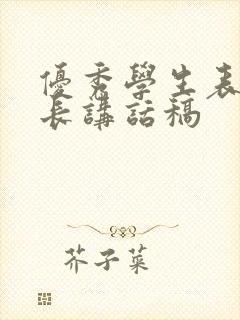 優秀學生表
長講話稿
芥子菜